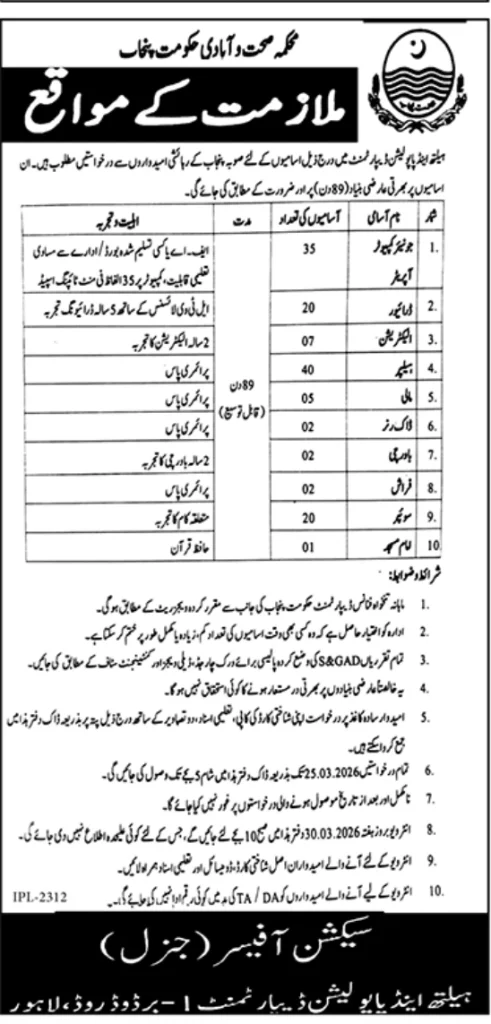 محکمہ صحت و آبادی حکومت پنجاب
ملازمت کے مواقع
ہیلتھ اینڈ پاپولیشن ڈیپارٹمنٹ میں درج ذیل اسامیوں کے لئے صوبہ پنجاب کے رہائشی امیدواروں سے درخواستیں مطلوب ہیں۔ ان
اسامیوں پر بھرتی عارضی بنیاد (89 دن) پر اور ضرورت کے مطابق کی جائے گی۔
شمار نام آسامی آسامیوں کی تعداد مدت اہلیت و تجربہ
1. جونیئر کمپیوٹر آپریٹر 35 ایف۔ اے یا کسی تسلیم شدہ بورڈ/ ادارے سے مساوی
تعلیمی قابلیت، کمپیوٹر پر 35 الفاظ فی منٹ ٹائپنگ اسپیڈ
2. ڈرائیور 20 ایل ٹی وی لائسنس کے ساتھ 5 سالہ ڈرائیونگ تجربہ
3. الیکٹریشن 07 2 سالہ الیکٹریشن کا تجربہ
4. ہیلپر 40 پرائمری پاس
89 دن
(قابل توسیع)
5. مالی 05 پرائمری پاس
6. ڈاک رنر 02 پرائمری پاس
7. باورچی 02 2 سالہ باورچی کا تجربہ
8. فراش 02 پرائمری پاس
9. سوئپر 20 متعلقہ کام کا تجربہ
10. امام مسجد 01 حافظ قرآن
شرائط و ضوابط:
1. ماہانہ تنخواہ فنانس ڈیپارٹمنٹ حکومت پنجاب کی جانب سے مقرر کردہ ویجز ریٹ کے مطابق ہوگی۔
2. ادارہ کو اختیار حاصل ہے کہ وہ کسی بھی وقت اسامیوں کی تعداد کم، زیادہ یا مکمل طور پر ختم کر سکتا ہے۔
3. تمام تقرریاں S&GAD کی وضع کردہ پالیسی برائے ورک چارجڈ، ڈیلی ویجز اور کنٹینجنٹ سٹاف کے مطابق کی جائیں۔
4. یہ خالصتاً عارضی بنیادوں پر بھرتی ور مستعار ہونے کا کوئی استحقاق نہیں ہوگا۔
5. امیدوار سادہ کاغذ پر درخواست اپنی شناختی کارڈ کی کاپی، تعلیمی اسناد، دو تصاویر کے ساتھ درج ذیل پتہ پر بذریعہ ڈاک دفتر ہذا میں
جمع کروا سکتے ہیں۔
6. تمام درخواستیں 25.03.2026 تک بذریعہ ڈاک دفتر ہذا میں شام 5 بجے تک وصول کی جائیں گی۔
7. نامکمل اور بعد از تاریخ موصول ہونے والی درخواستوں پر غور نہیں کیا جائے گا۔
8. انٹرویو بروز ہفتہ 30.03.2026 دفتر ہذا میں صبح 10 بجے لئے جائیں گے، جس کے لئے کوئی علیحدہ اطلاع نہیں دی جائے گی۔
9. انٹرویو کے لئے آنے والے امیدواران اصل شناختی کارڈ، ڈومیسائل اور تعلیمی اسناد ہمراہ لائیں۔
10. انٹرویو کے لیے آنے والے امیدواروں کو TA / DA کی مد میں کوئی رقم ادا نہیں کی جائے گی۔
IPL-2312
سیکشن آفیسر (جنرل)
ہیلتھ اینڈ پاپولیشن ڈیپارٹمنٹ 1- برڈوڈ روڈ، لاہور